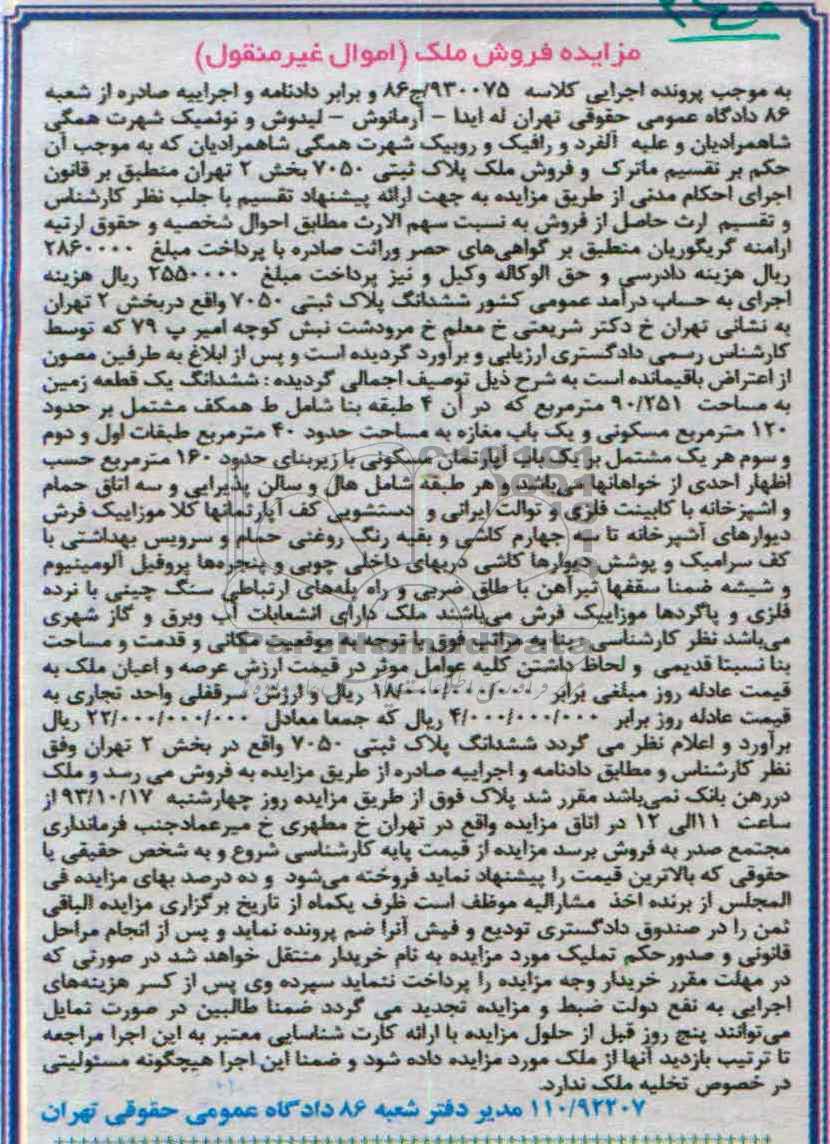 مزایده فروش ملک (اموال غیرمنقول)
به موجب پرونده اجرایی کلاسه ۹۳۰۰۷۵/ج۸۶ و برابر دادنامه و اجراییه صادره از شعبه
۸۶ دادگاه عمومی حقوقی تهران له ایدا - آرمانوش - لیدوش و نوئمیک شهرت همگی
شاهمرادیان و علیه آلفرد و رافیک و روبیک شهرت همگی شاهمرادیان که به موجب آن
حکم بر تقسیم ماترک و فروش ملک پلاک ثبتی ۷۰۵۰ بخش ۲ تهران منطبق بر قانون
اجرای احکام مدنی از طریق مزایده به جهت ارائه پیشنهاد تقسیم با جلب نظر کارشناس
و تقسیم ارث حاصل از فروش به نسبت سهم الارث مطابق احوال شخصیه و حقوق ارثیه
ارامنه گریگوریان منطبق بر گواهی‌های حصر وراثت صادره با پرداخت مبلغ ۲۸۶۰۰۰۰
ریال هزینه دادرسی و حق الوکاله وکیل و نیز پرداخت مبلغ ۲۵۵۰۰۰۰ ریال هزینه
اجرای به حساب درآمد عمومی کشور ششدانگ پلاک ثبتی ۷۰۵۰ واقع دربخش ۲ تهران
به نشانی تهران خ دکتر شریعتی خ معلم خ مرودشت نبش کوچه امیر پ ۷۹ که توسط
کارشناس رسمی دادگستری ارزیابی و برآورد گردیده است و پس از ابلاغ به طرفین مصون
از اعتراض باقیمانده است به شرح ذیل توصیف اجمالی گردیده : ششدانگ یک قطعه زمین
به مساحت ۹۰/۲۵۱ مترمربع که در آن ۴ طبقه بنا شامل ط همکف مشتمل بر حدود
۱۲۰ مترمربع مسکونی و یک باب مغازه به مساحت حدود ۴۰ مترمربع طبقات اول و دوم
و سوم هر یک مشتمل بر یک باب آپارتمان مسکونی با زیربنای حدود ۱۶۰ مترمربع حسب
اظهار احدی از خواهانها می‌باشد ، هر طبقه شامل هال و سالن پذیرایی و سه اتاق حمام
و اشپزخانه با کابینت فلزی و توالت ایرانی و دستشویی کف آپارتمانها کلا موزاییک فرش
دیوارهای آشپرخانه تا سه چهارم کاشی و بقیه رنگ روغنی حمام و سرویس بهداشتی با
کف سرامیک و پوشش دیوارها کاشی دربهای داخلی چوبی و پنجره‌ها پروفیل آلومینیوم
و شیشه ضمنا سقفها تیرآهن با طاق ضربی و راه پله‌های ارتباطی سنگ چینی با نرده
فلزی و پاگردها موزاییک فرش می‌باشند ملک دارای انشعابات آب وبرق و گاز شهری
می‌باشد نظر کارشناسی : بنا به مراتب فوق با توجه به موقعیت مکانی و قدمت و مساحت
بنا نسبتا قدیمی و لحاظ داشتن کلیه عوامل موثر در قیمت ارزش عرصه و اعیان ملک به
قیمت عادله روز مبلغی برابر ۱۸/۰۰۰/۰۰۰/۰۰۰ ریال و ارزش سرقفلی واحد تجاری به
قیمت عادله روز برابر ۴/۰۰۰/۰۰۰/۰۰۰ ریال که جمعا معادل ۲۲/۰۰۰/۰۰۰/۰۰۰ ریال
برآورد و اعلام نظر می گردد ششدانگ پلاک ثبتی ۷۰۵۰ واقع در بخش ۲ تهران وفق
نظر کارشناس و مطابق دادنامه و اجراییه صادره از طریق مزایده به فروش می رسد و ملک
دررهن بانک نمی‌باشد مقرر شد پلاک فوق از طریق مزایده روز چهارشنبه ۹۳/۱۰/۱۷ از
ساعت ۱۱الی ۱۲ در اتاق مزایده واقع در تهران خ مطهری خ میرعمادجنب فرمانداری
مجتمع صدر به فروش برسد مزایده از قیمت پایه کارشناسی شروع و به شخص حقیقی یا
حقوقی که بالاترین قیمت را پیشنهاد نماید فروخته می‌شود و ده درصد بهای مزایده فی
المجلس از برنده اخذ مشارالیه موظف است ظرف یکماه از تاریخ برگزاری مزایده الباقی
ثمن را در صندوق دادگستری تودیع و فیش آنرا ضم پرونده نماید و پس از انجام مراحل
قانونی و صدورحکم تملیک مورد مزایده به نام خریدار منتقل خواهد شد در صورتی که
در مهلت مقرر خریدار وجه مزایده را پرداخت ننماید سپرده وی پس از کسر هزینه‌های
اجرایی به نفع دولت ضبط و مزایده تجدید می گردد ضمنا طالبین در صورت تمایل
می‌توانند پنج روز قبل از حلول مزایده با ارائه کارت شناسایی معتبر به این اجرا مراجعه
تا ترتیب بازدید آنها از ملک مورد مزایده داده شود و ضمنا این اجرا هیچگونه مسئولیتی
در خصوص تخلیه ملک ندارد.
۱۱۰/۹۲۲۰۷ مدیر دفتر شعبه ۸۶ دادگاه عمومی حقوقی تهران
ParsNamadData